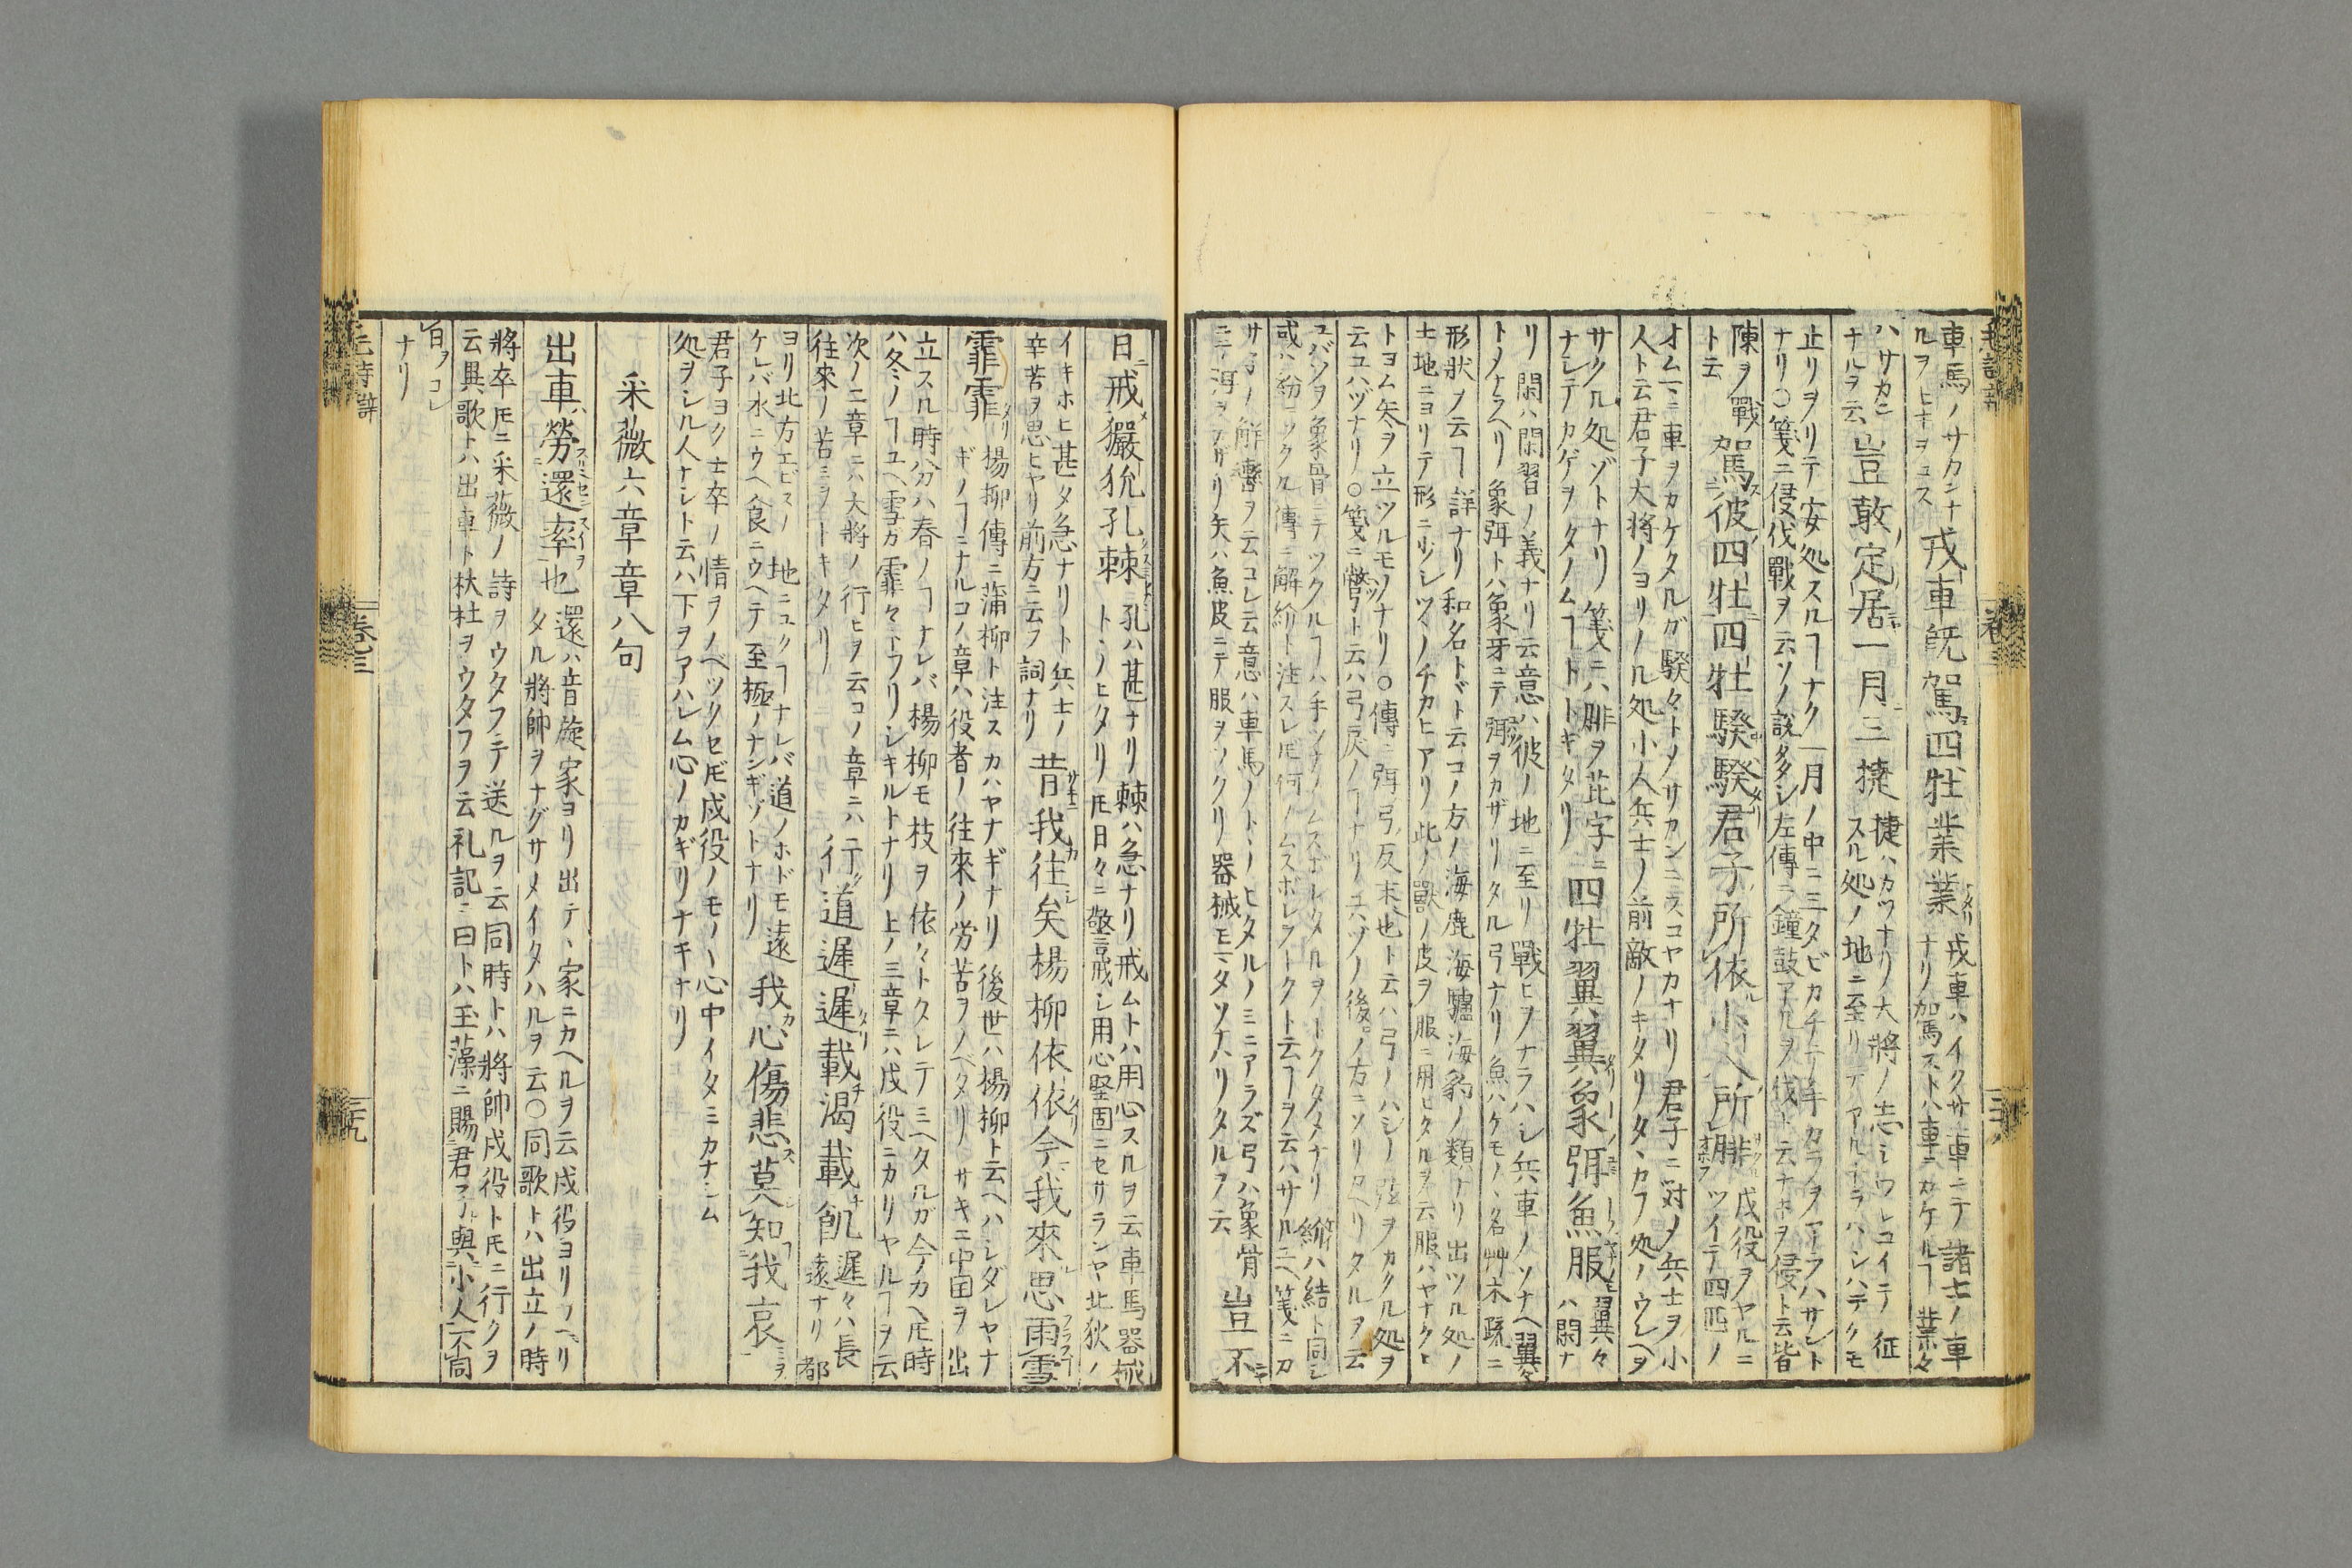 車馬ノサカンナ
ルヲヒキヲコス
戎車既駕四牡業業
戎車ハイクサ車ニテ諸士ノ車
ナリ駕ストハ車ニカケルヿ業々
ハサカンニ
ナルヲ云
豈敢定居一月三捷
捷ハカツナリ大將ノ志シワレコイテ征
スル処ノ地ニ至リテアルナラハシハテクモ
止リヲリテ安処スルヿナク一月ノ中ニ三タビカチテ
ナリ○箋ニ侵伐戰ヲ云ソノ説多シ左傳ニ鐘鼓アルヲ伐ト云ナキヲ侵ト云皆
陳ヲ戰
ト云
駕彼四牡四牡騤騤君子所依小人所腓
戍役ヲヤルニ
ツイテ四匹ノ
オムマニ車ヲカケタルガ騤々トメサカンニコヤカナリ君子ニ対メ兵士ヲ小
人ト云君子大將ノヨリノル処小人兵士ノ前敵ノキタリタヽカフ処ノウレヘヲ
サクル処ゾトナリ箋ニハ腓ヲ芘字ニ
ナレテカゲヲタノムヿトトキタリ
四牡翼翼象弭魚服
翼々
ハ閑ナ
リ閑ハ閑習ノ義ナリ云意ハ彼ノ地ニ至リ戰ヒヲナラハシ兵車ノソナヘ翼々
トメナラヘリ象弭トハ象牙ニテ弭ヲカザリタル弓ナリ魚ハケモノヽ名艸木疏ニ
形狀ノ云ヿ詳ナリ和名トヾト云コノ方ノ海鹿海驢ノ海豹ノ類ナリ出ツル処ノ
土地ニヨリテ形ニ少シツヽノチカヒアリ此ノ獸ノ皮ヲ服ニ用ヒタルヲ云服ハヤナクヒ
トヨム矢ヲ立ツルモノナリ○傳ニ弭弓反末也ト云ハ弓ノハシノ弦ヲカクル処ヲ
云ユハヅナリ○箋ニ弓ト云ハ弓戻ノヿナリユハヅノ後ノ方ニソリカヘリタルヲ云
ユバソヲ象骨ニテツクルヿハ手ンナノムスボレタルヲトクタメナリハ結ト同シ
或ハ紛ニツクル傳ニ解紛ト注スレ𪜈何ノムスボレヲトクト云ヿヲ云ハサルユヘ箋ニ刀
ノ解轡ヲ云コレ云意ハ車馬ノトヽノヒタルノミニアラズ弓ハ象骨
ニテ弭ヲカザリ矢ハ魚皮ニテ服ヲツクリ器械モマタソナハリタルヲ云
豈不
日戒玁狁孔棘
孔ハ甚ナリ棘ハ急ナリ戒ムトハ用心スルヲ云車馬器械
トヽノヒタリ𪜈日々ニ警戒シ用心堅固ニセサランヤ北狄ノ
イキホヒ甚タ急ナリト兵士ノ
辛苦ヲ思ヒヤリ前方ニ云フ詞ナリ
昔我往矣楊柳依依今我來思雨雪
霏霏
楊柳傳ニ蒲柳ト注スカハヤナギナリ後世ハ楊柳ト云ヘハシダレヤナ
ギノヿニナルコノ章ハ役者ノ往來ノ労苦ヲノベタリサキニ中国ヲ出
立スル時分ハ春ノヿナレバ楊柳モ枝ヲ依々トタレテミヘタルガ今ノカヘ𪜈時
ハ冬ノヿユヘ雪ガ霏々トフリシキルトナリ上ノ三章ニハ戍役ニカリヤルヿヲ云
次ノ二章ニハ大將ノ行ヒヲ云コノ章ニハ
往來ノ苦ミヲトキタリ
行道遲遲載渴載飢
遲々ハ長
遠ナリ都
ヨリ北方エビスノ地ニユクヿナレバ道ノホドモ遠
ケレバ水ニウヘ食ニウヘテ至極ノナンギゾトナリ
我心傷悲莫知我哀
君子ヨク士卒ノ情ヲノベツクセ𪜈戍役ノモノヽ心中イタミカナシム
処ヲシル人ナシト云ハ下ヲアハレム心ノカギリナキナリ
采薇六章章八句
出車勞還率也
還ハ音旋家ヨリ出テヽ家ニカヘルヲ云戍役ヨリカヘリ
タル將帥ヲナグサメイタハルヲ云○同歌トハ出立ノ時
將卒𪜈ニ采薇ノ詩ヲウタフテ送ルヲ云同時トハ將帥戍役ト𪜈ニ行クヲ
云異歌トハ出車ト杕杜ヲウタフヲ云礼記ニ曰トハ玉藻ニ賜君子與小人不同
日ヲコレ
ナリ
卷三